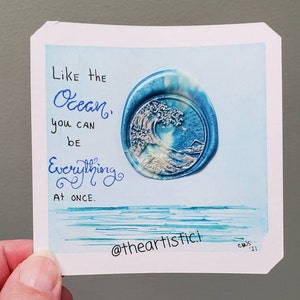 Like the
Ocean,
you can
be
Everything
at once.
@theartistic.i